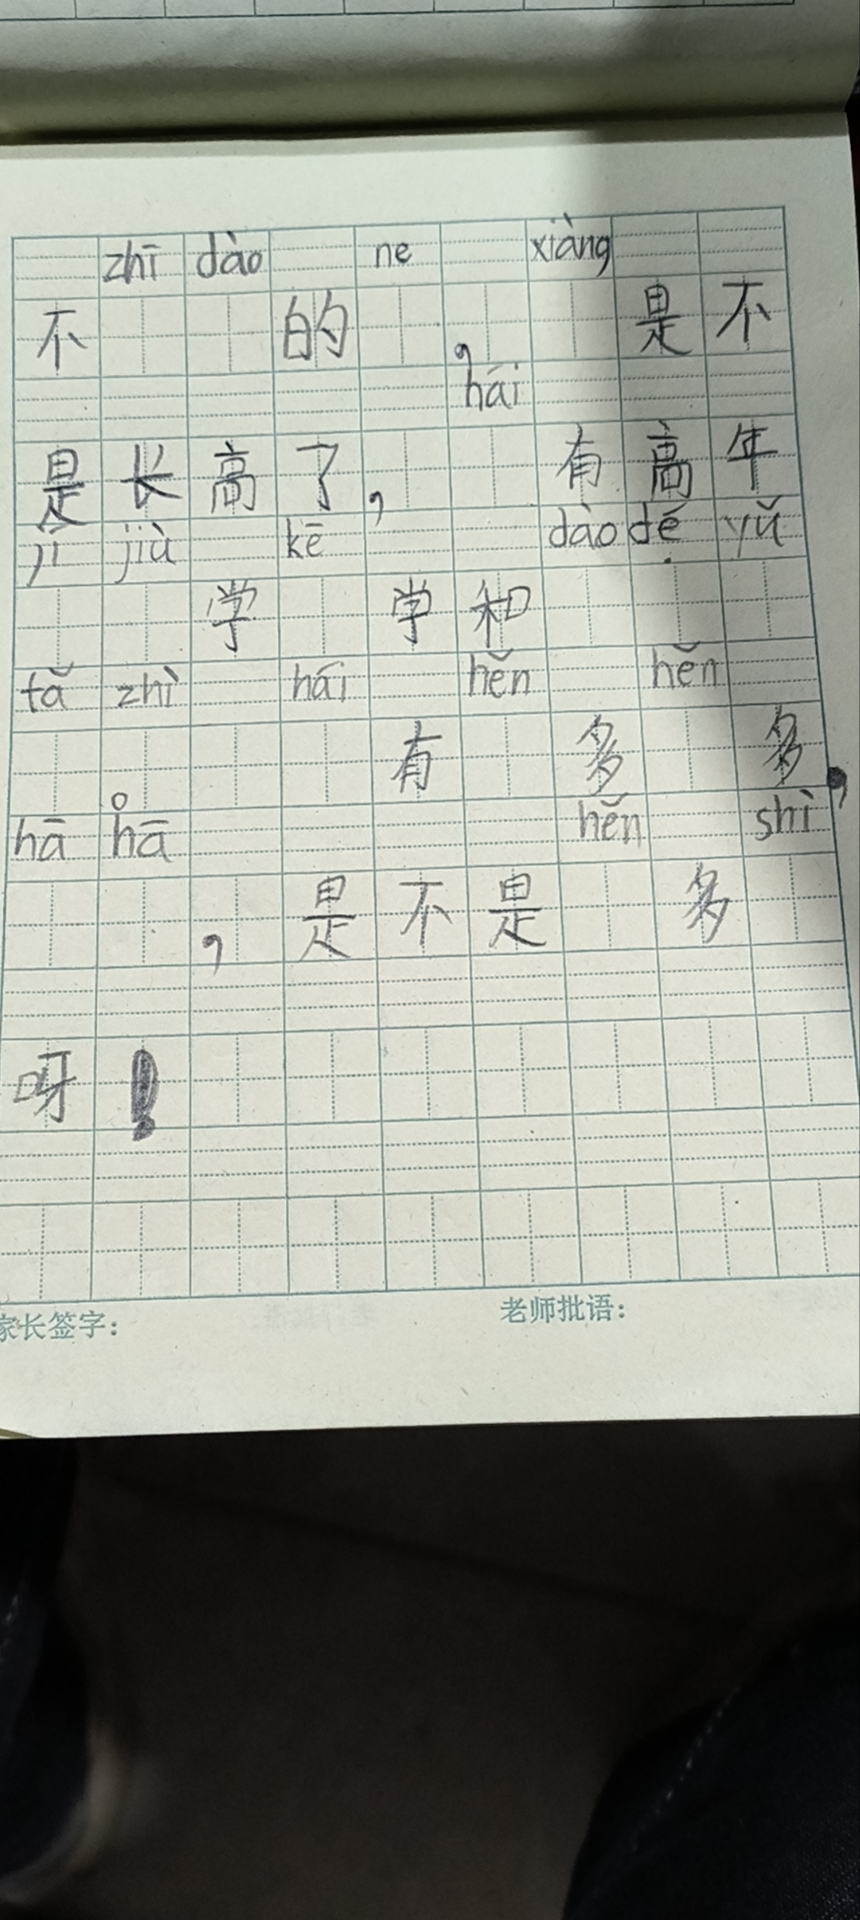 zhī dào ne xiàng
不 的 , 是 不
hái
是 长 高 了 , 有 高 年
jí jià kē dào dé yǔ
学 学 和
tǎ zhì hái hěn hěn
有 多 多 ,
hā hā hěn shì
, 是 不 是 多
呀 !
家长签字: 老师批语: